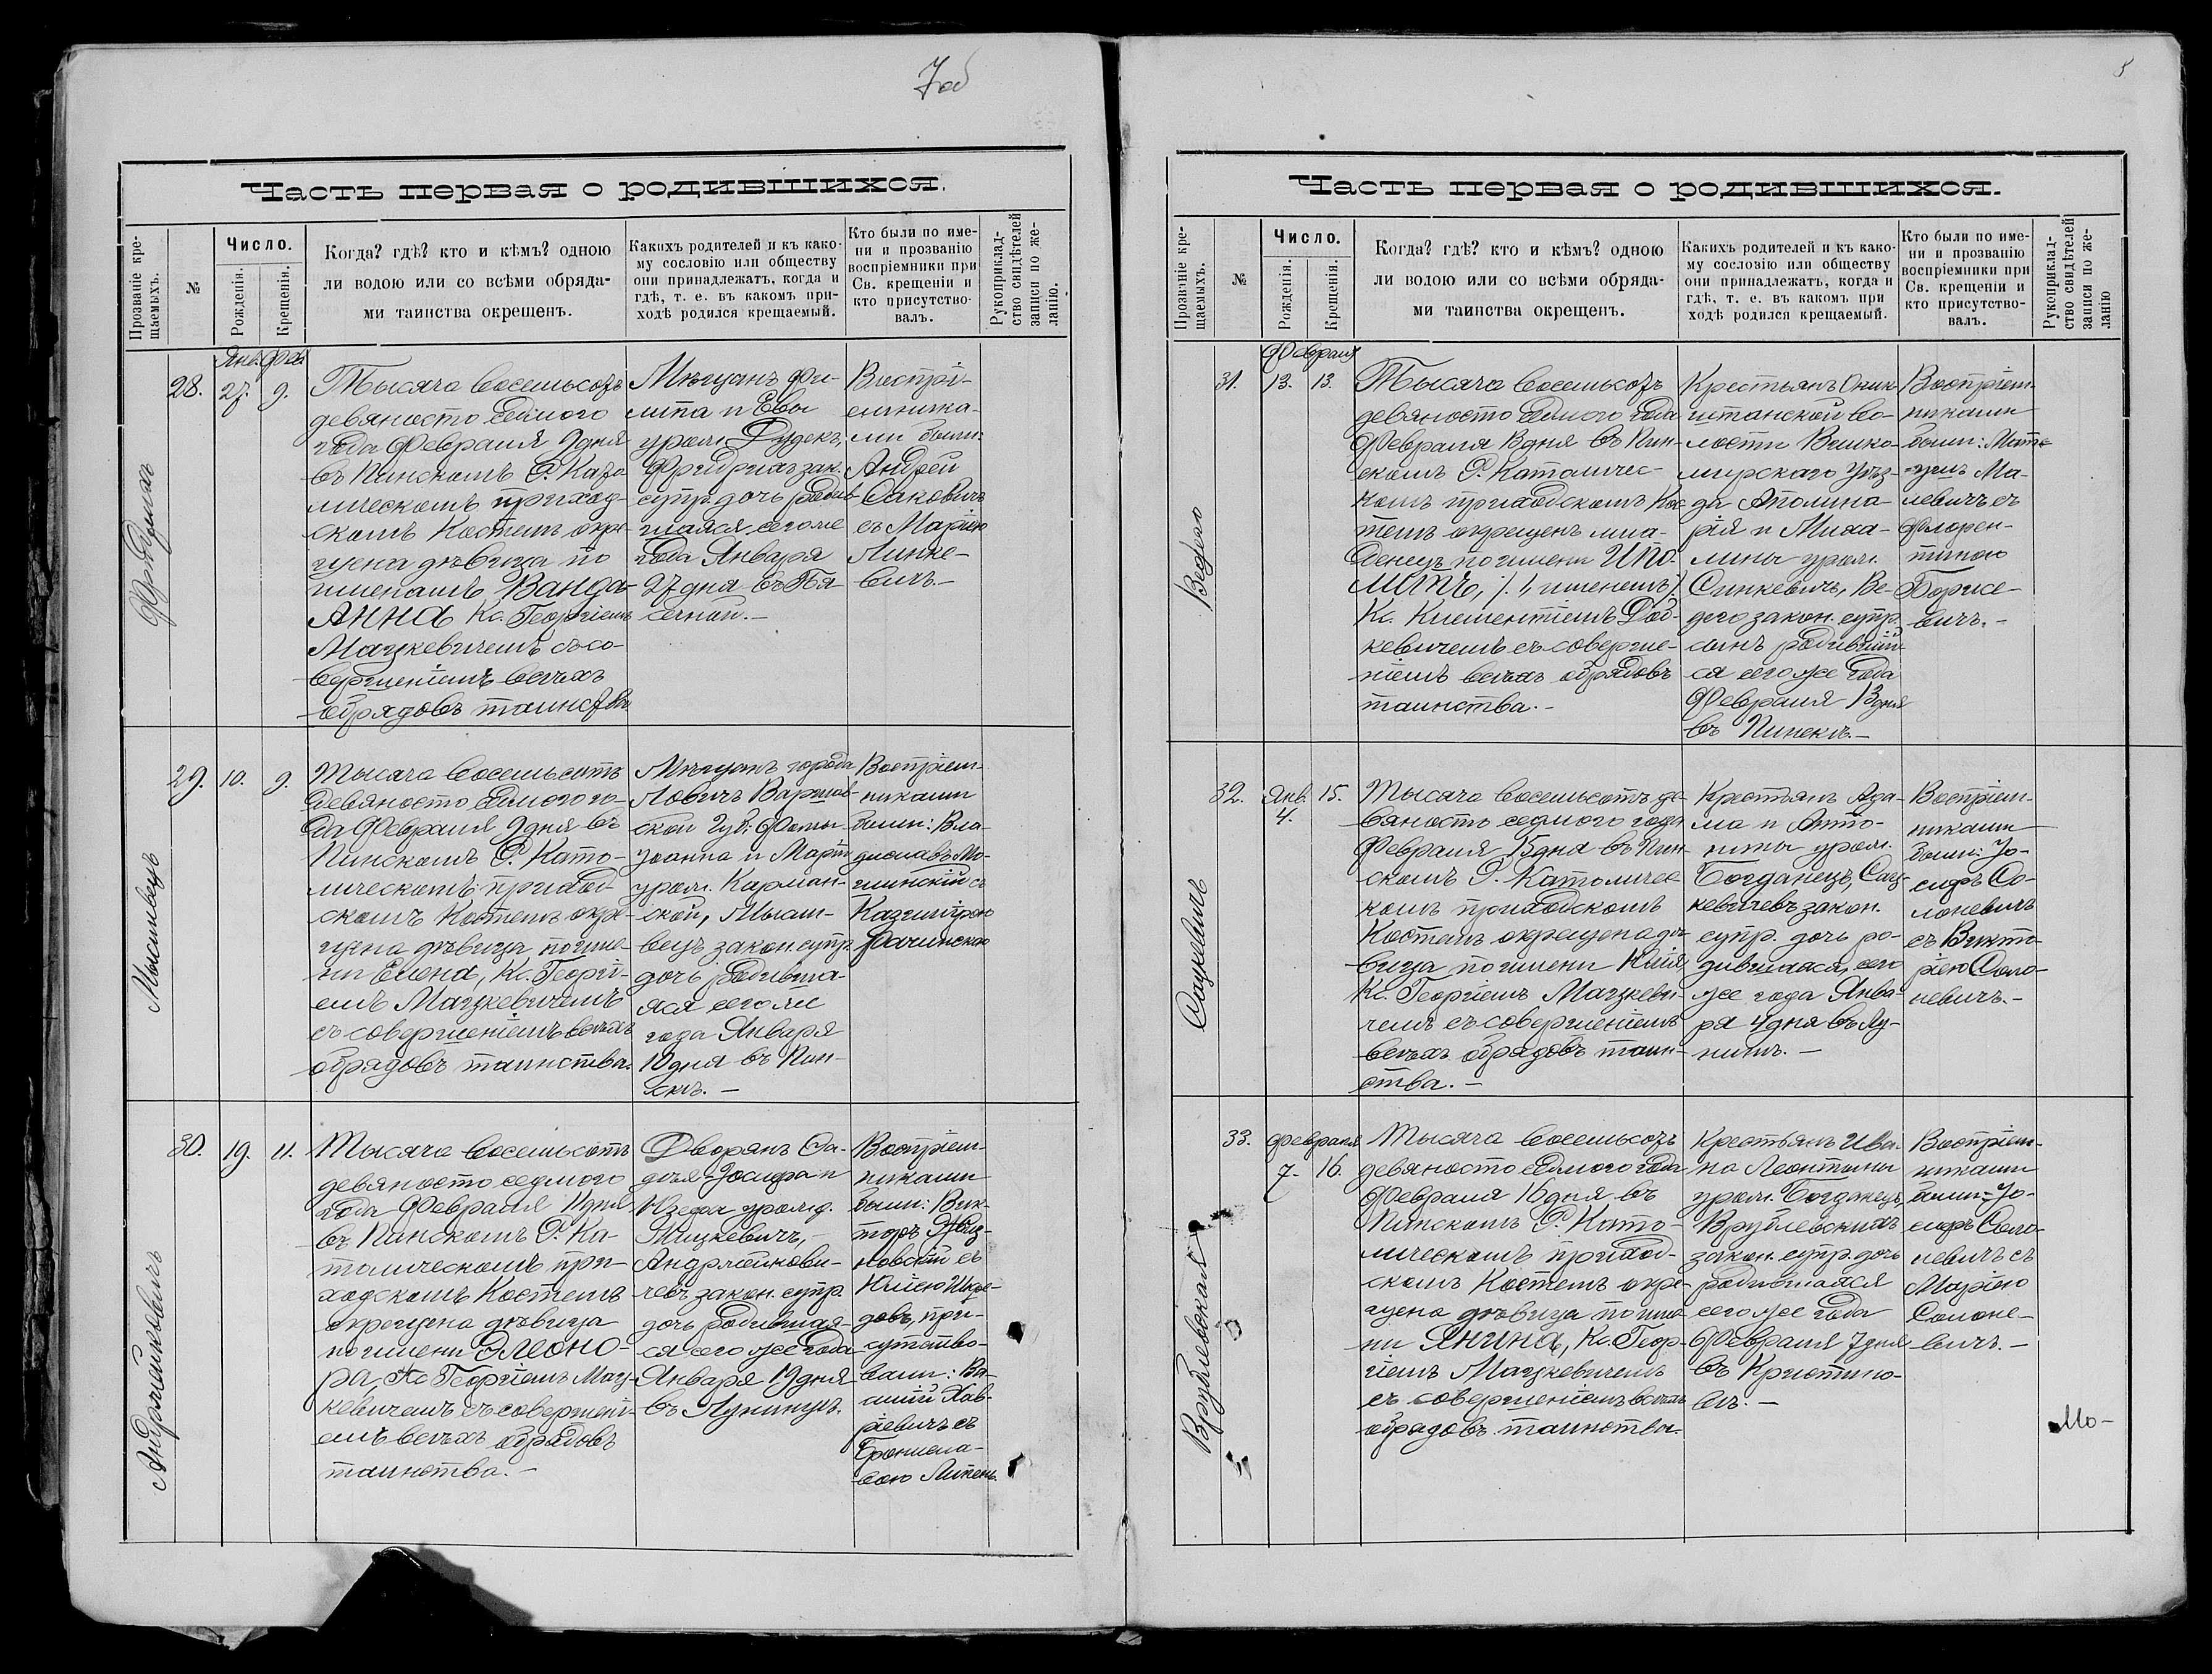 7об
Часть первая о родившихся.
Прозваніе кре-
щаемыхъ.
№
Число.
Рожденія.
Крещенія.
Когда? гдѣ? кто и кѣмъ? одною
ли водою или со всѣми обряда-
ми таинства окрещенъ.
Какихъ родителей и къ како-
му сословію или обществу
они принадлежатъ, когда и
гдѣ, т. е. въ какомъ при-
ходѣ родился крещаемый.
Кто были по име-
ни и прозванію
воспріемники при
Св. крещеніи и
кто присутство-
валъ.
Рукоприклад-
ство свидѣтелей
записи по же-
ланію.
Фридрихъ
28.
Янв. Фев
27. 9.
Тысяча восемьсотъ
девяносто седмого
года Февраля 9 дня
въ Пинскомъ Р. Като
лическомъ приход-
скомъ Костелѣ окре-
щена дѣвица по
именамъ Ванда-
Анна Кс. Георгіемъ
Мацкевичемъ съ со-
вершеніемъ всѣхъ
обрядовъ таинства
Мѣщанъ Фи-
липа и Евы
урожд. Дудекъ,
Фридрихъ зак.
супр. дочь родив-
шаяся сего же
года Января
27 дня въ
Воспрі-
емника-
ми были:
Андрей
Саковичъ
съ Маріею
Линке-
вичъ.-
Мысливецъ
29. 10. 9.
Тысяча восемьсотъ
девяносто седмого го-
да Февраля 9 дня въ
Пинскомъ Р. Като-
лическомъ приход-
скомъ Костелѣ окре-
щена дѣвица по име-
ни Елена, Кс. Георгі-
емъ Мацкевичемъ
съ совершеніемъ всѣхъ
обрядовъ таинства.
Мѣщанъ города
Ловичъ Варшав-
ской Губ:
Іоанна и Маріи
урожд. Карман-
ской, Мысли-
вецъ закон. супр.
дочь родивша-
яся сего же
года Января
10 дня въ Пин-
скѣ.-
Воспріем-
никами
были: Вла-
диславъ Мо-
съ
Казимірою
Рачинскою
Андржейковичъ
30. 19. 11.
Тысяча восемьсотъ
девяносто седмого
года Февраля 11 дня
въ Пинскомъ Р. Ка-
толическомъ при-
ходскомъ Костелѣ
окрещена дѣвица
по имени Элеоно-
ра, Кс Георгіемъ Мац-
кевичемъ съ совершені-
емъ всѣхъ обрядовъ
таинства.-
Дворянъ
Іосифа и
Юзефа урожд.
Мицкевичъ,-
Андржейкови-
чевъ закон. супр.
дочь родившая-
ся сего же года
Января 19 дня
въ Лунинцѣ.
Воспріем-
никами
были: Вик-
торъ
съ
Юліею
при-
сутство-
вали: Ва-
силій Хав-
ріевичъ съ
Брониcла-
вою
8
Часть первая о родившихся.
Прозваніе кре-
щаемыхъ.
№
Число.
Рожденія.
Крещенія.
Когда? гдѣ? кто и кѣмъ? одною
ли водою или со всѣми обряда-
ми таинства окрещенъ.
Какихъ родителей и къ како-
му сословію или обществу
они принадлежатъ, когда и
гдѣ, т. е. въ какомъ при
ходѣ родился крещаемый.
Кто были по име-
ни и прозванію
воспріемники при
Св. крещеніи и
кто присутство-
валъ.
Рукоприклад-
ство свидѣтелей
записи по же-
ланію
Ведего
31.
Февраля
13. 13.
Тысяча восемьсотъ
девяносто седмого года
Февраля 13 дня въ Пин-
скомъ Р. Католичес-
комъ приходскомъ Кос
телѣ окрещенъ мла-
денецъ по имени Ипо-
литъ,
Кс. Клементіемъ Род-
кевичемъ съ соверше-
ніемъ всѣхъ обрядовъ
таинства.-
Крестьянъ Оник-
штанской во-
лости Вилко-
мирскаго Уѣз-
да Аполина-
рія и Миха-
лины урожд.
Синкевичъ, Ве-
дего закон. супр.
сынъ родившій
ся сего же года
Февраля 13 дня
въ Пинскѣ.-
Воспріем-
никами
были: Мате-
ушъ Ма-
левичъ съ
Флорен-
тиною
Борисе-
вичъ.-
Сацкевичъ
32.
Янв. 15.
4.
Тысяча восемьсотъ де-
вяностъ седмого года
Февраля 15 дня въ Пин-
скомъ Р. Католичес
комъ приходскомъ
Костелѣ окрещена дѣ-
вица по имени Юлія
Кс. Георгіемъ Мацкеви-
чемъ съ совершеніемъ
всѣхъ обрядовъ таин-
ства.-
Крестьянъ Ада-
ма и Анто-
нины урожд.
Богданецъ, Сац-
кевичевъ закон.
супр. дочь ро-
дившаяся, сего
же года Янва-
ря 4 дня въ Лу-
нинѣ.-
Воспріем-
никами
были: Іо-
сифъ Со-
лоневичъ
съ Викто-
ріею Соло-
невичъ.-
Врублевская
33.
Февраля
7. 16.
Тысяча восемьсотъ
девяносто седмого года
Февраля 16 дня въ
Пинскомъ Р. Като-
лическомъ приход-
скомъ Костелѣ окре-
щена дѣвица по име-
ни Янина, Кс. Геор-
гіемъ Мацкевичемъ
съ совершеніемъ всѣхъ
обрядовъ таинства.
Крестьянъ Ива-
на Леонтины
урожд. Богданецъ,
Врублевскихъ
закон. супр. дочь
родившаяся
сего же года
Февраля 7 дня
въ Кристино-
вѣ.-
Воспріем-
никами
были: Іо-
сифъ Соло-
невичъ съ
Маріею
Солоне-
вичъ.-